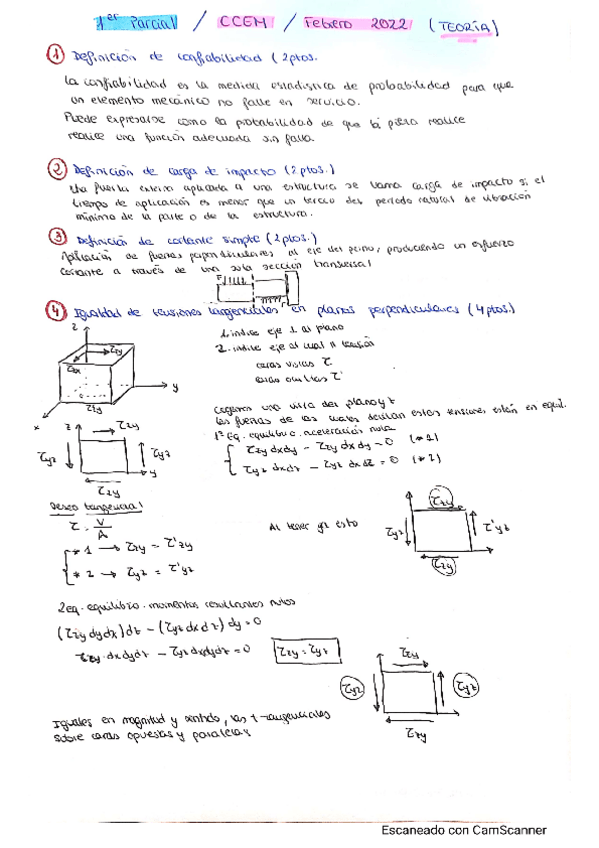 1er Parcial / CCEM / Febrero 2022 (TEORÍA)
1 Definición de confiabilidad (2 ptos.
La confiabilidad es la medida estadística de probabilidad para que
un elemento mecánico no falle en servicio.
Puede expresarse como la probabilidad de que la pieza realice
realice una función adecuada sin falla.
2 Definición de carga de impacto (2 ptos.)
Una fuerza externa aplicada a una estructura se llama carga de impacto si el
tiempo de aplicación es menor que un tercio del periodo natural de vibración
mínimo de la parte o de la estructura.
3 Definición de cortante simple (2 ptos.)
Aplicación de fuerzas perpendiculares al eje del perno, produciendo un esfuerzo
cortante a través de una sola sección transversal
F
F
4 Igualdad de tensiones tangenciales en planos perpendiculares (4 ptos.)
1. índice eje ⊥ al plano
2. índice eje al cual tensión
caras vistas τ
caras ocultas τ'
z
τzy
y
x
τzy
Cogemos una vista del plano yz
las fuerzas de las cuales derivan estas tensiones están en equil.
1º Eq. equilibrio. aceleración nula
τzy dxdy - τzy dxdy = 0 (*1)
τyz dxdz - τyz dxdz = 0 (*2)
z
τzy
τyz
τyz
y
τzy
tangencial
τ = V/A
*1 → τzy = τ'zy
*2 → τyz = τ'yz
Al tener ya esto
τzy
τyz
τ'yz
τzy
2 eq. equilibrio. momentos resultantes nulos
(τzy dydx)dz - (τyz dxdz)dy = 0
τzy dxdydz - τyz dxdydz = 0
τzy = τyz
τzy
τyz
τyz
τzy
Iguales en magnitud y sentido, las t-tangenciales
sobre caras opuestas y paralelas
Escaneado con CamScanner